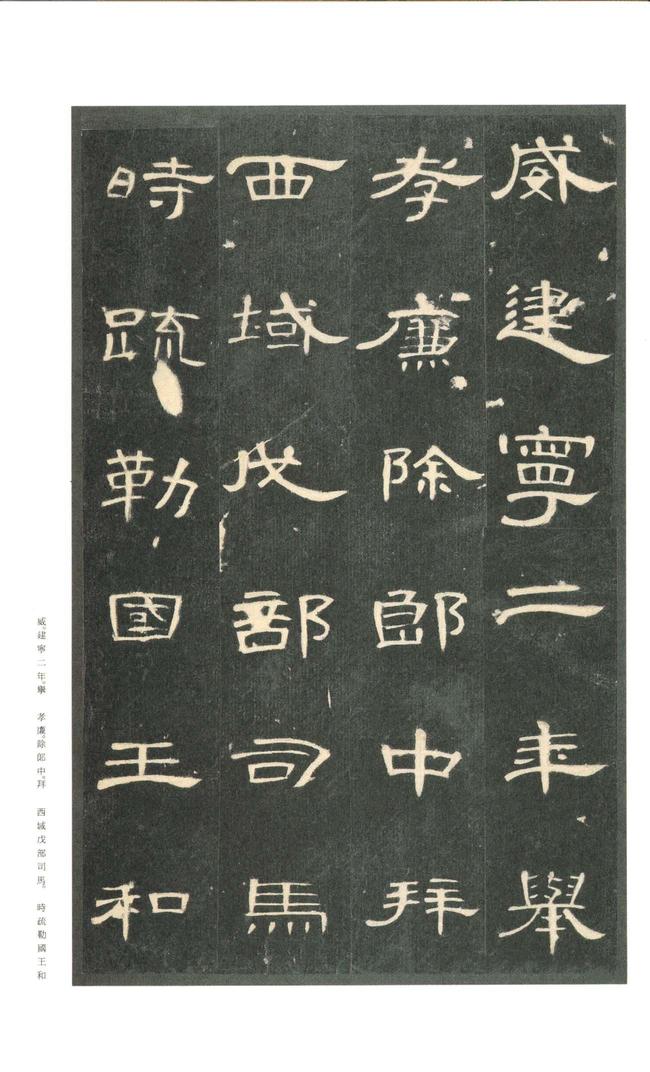 威建寧二年舉
孝廉除郎中拜
西域戊部司馬
時疏勒國王和
威。建寧二年。舉 孝廉。除郎中。拜 西域戊部司馬。 時疏勒國王和